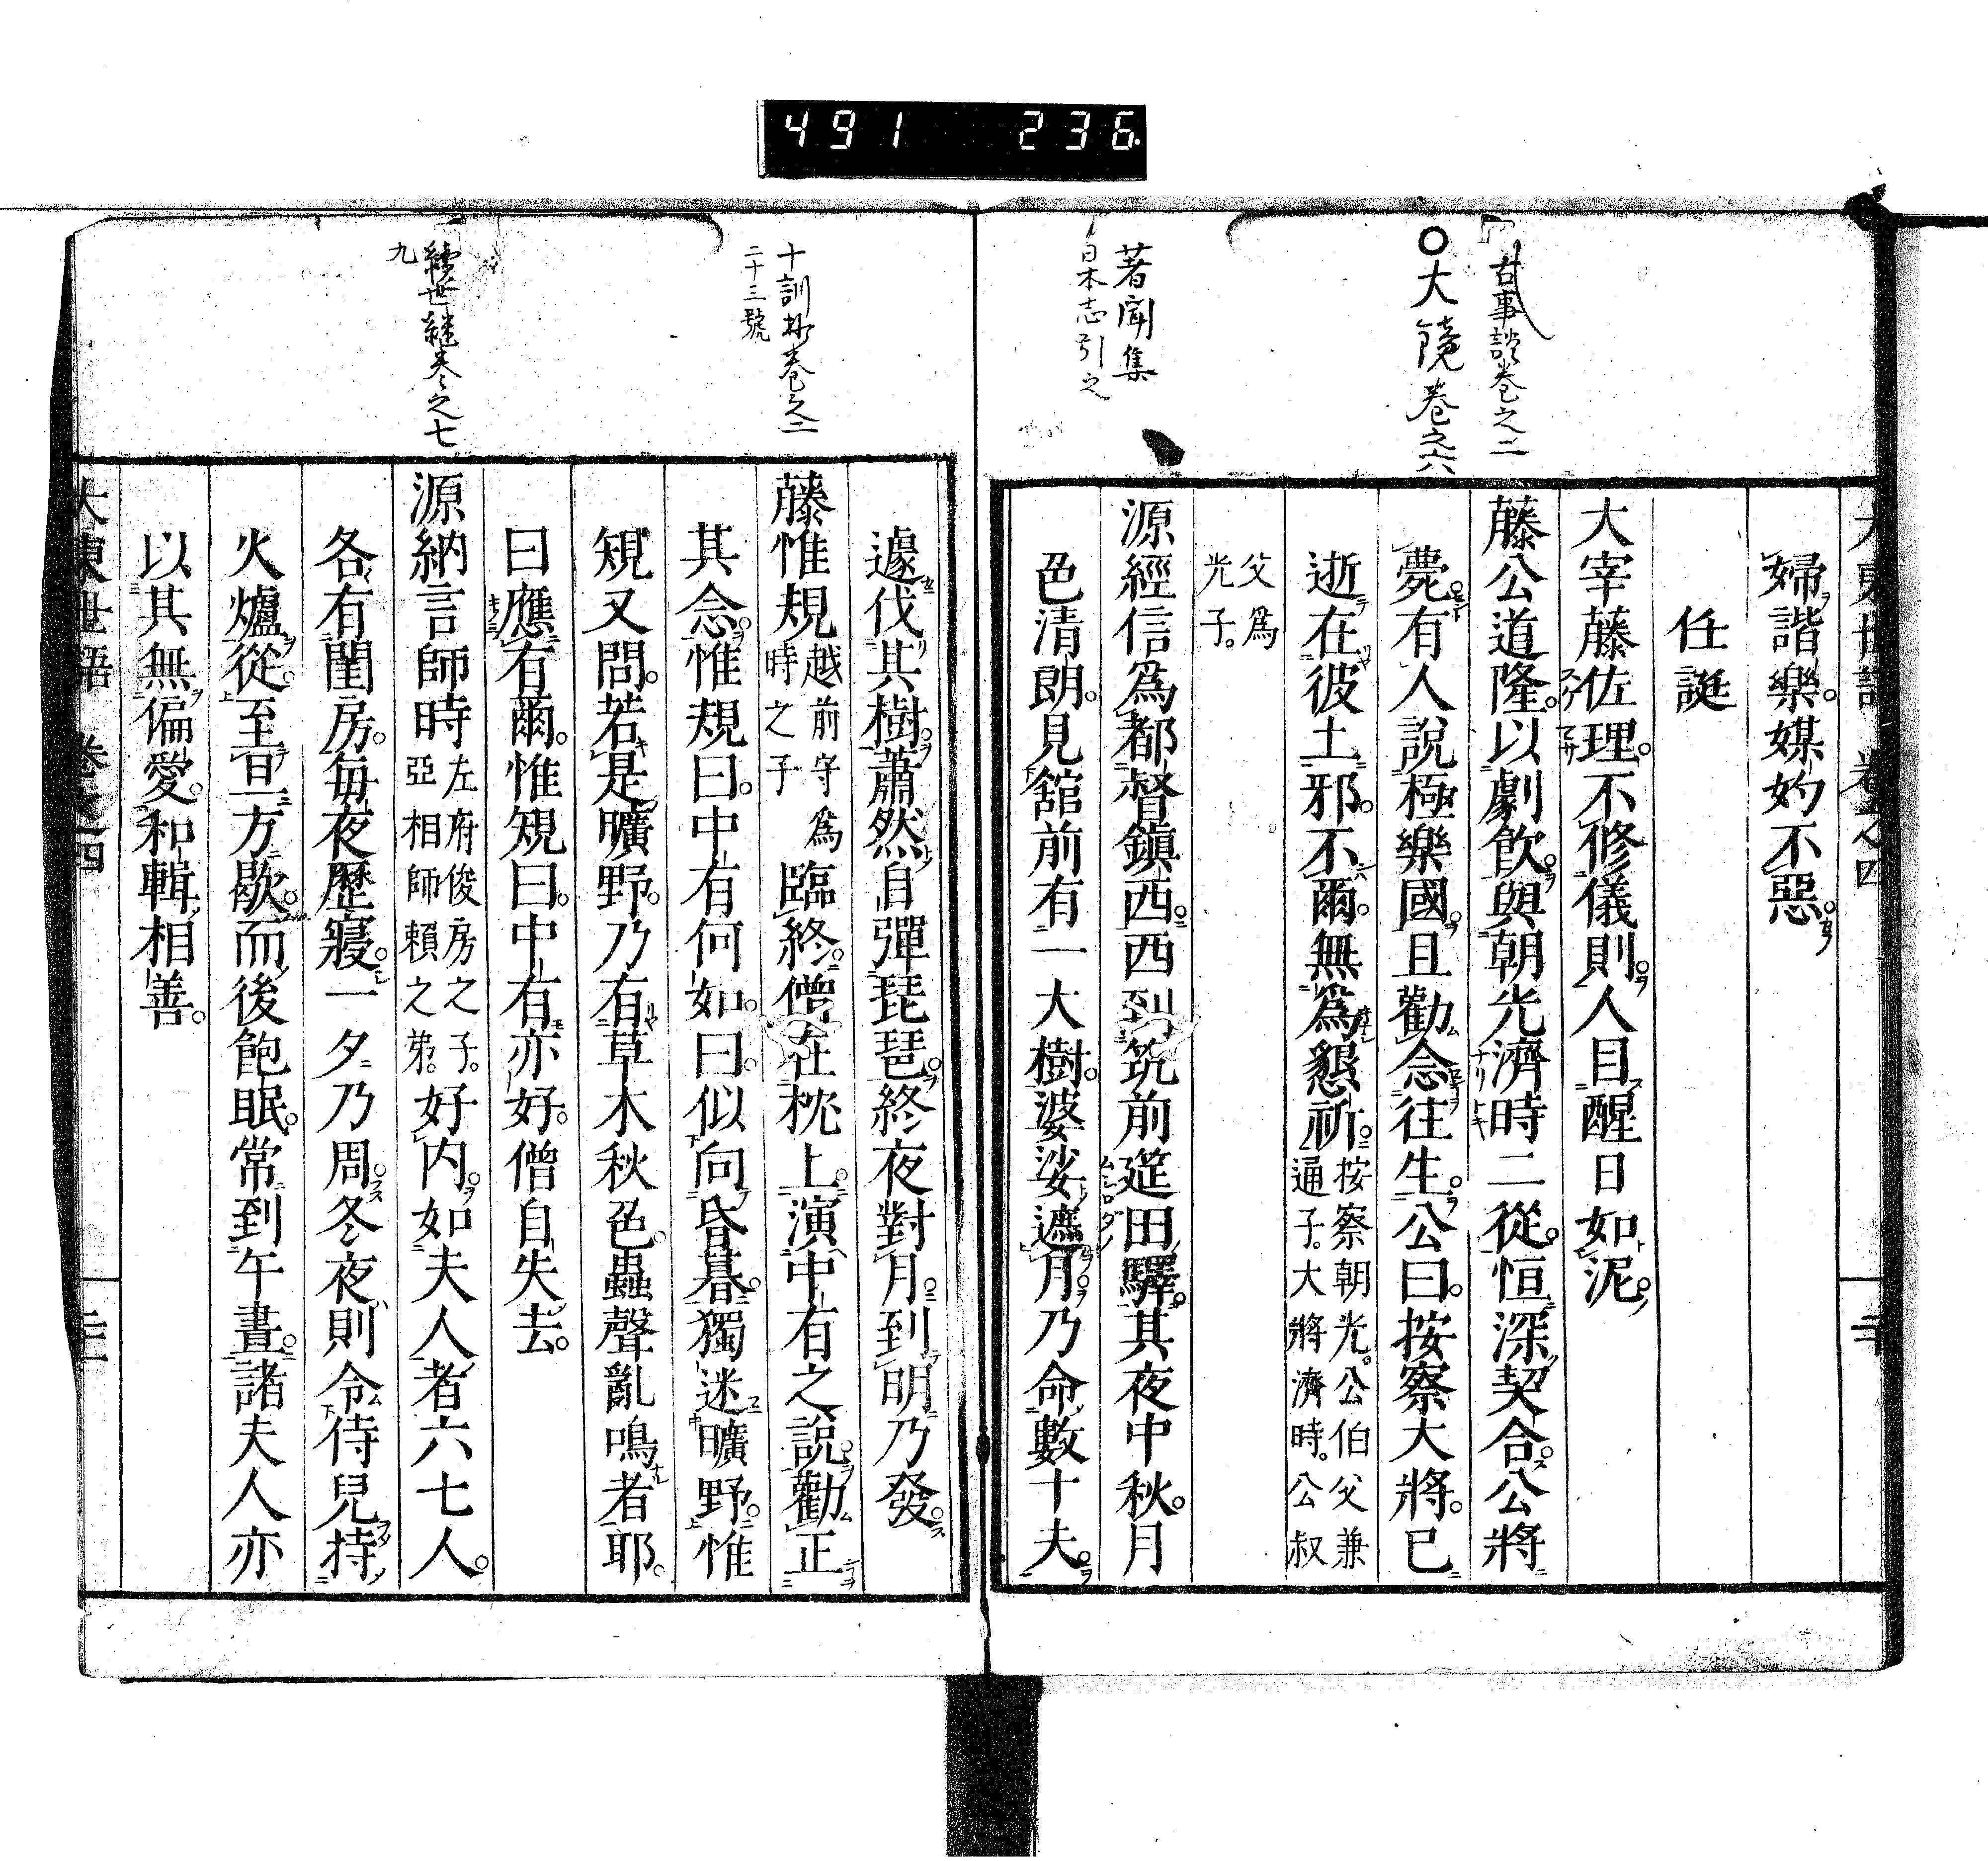 491 236
古事談卷之二
〇大鏡卷之六
著聞集
日本志引之
大東世語 卷之四 二十
婦諧樂。媒妁不惡。
任誕
大宰藤佐理。不修儀則。人目醒日如泥。
藤公道隆。以劇飲。與朝光濟時二從。恒深契合。公將
薨。有人說極樂國。且勸念往生。公曰。按察大將。已
逝在彼土邪。不爾。無爲懇祈。按察朝光。公伯父兼
通子。大將濟時。公叔
父爲
光子。
源經信爲都督鎭西。西到筑前筵田驛。其夜中秋。月
色清朗。見舘前有一大樹。婆娑遮月。乃命數十夫。
十訓抄卷之二
二十三號
續世繼卷之七
九
遽伐其樹。蕭然自彈琵琶。終夜對月。到明乃發。
藤惟規越前守爲
時之子臨終。僧在枕上。演中有之說。勸正
其念。惟規曰。中有何如。曰。似向昏暮。獨迷曠野。惟
規又問。若是曠野。乃有草木秋色。蟲聲亂鳴者耶。
曰應有爾。惟規曰。中有亦好。僧自失去。
源納言師時左府俊房之子。
亞相師賴之弟。好内。如夫人者六七人。
各有閨房。每夜歷寢。一夕乃周。冬夜則令侍兒持
火爐。從。至旦方歇。而後飽眠。常到午晝。諸夫人亦
以其無偏愛。和輯相善。
大東世語 卷之四 二十一